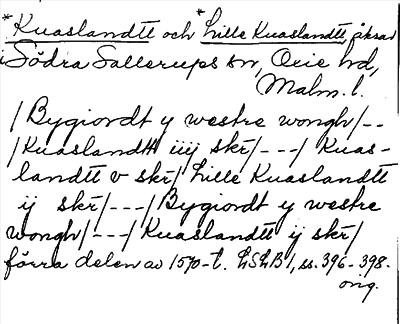 *Kuaslandtt och *Lille Kuaslandtt, åkrar
i Södra Sallerups sn, Oxie hd,
Malm. l.
/Bygiordt y westre wongh/--
/Kuaslandtt iiij skr/---/ Kuas-
landtt v skr/ Lille Kuaslandtt
ij skr/---/ Bygiordt y westre
wongh/---/ Kuaslandtt ij skr/
förra delen av 1570-t. LSLB 1, ss. 396-398.
orig.